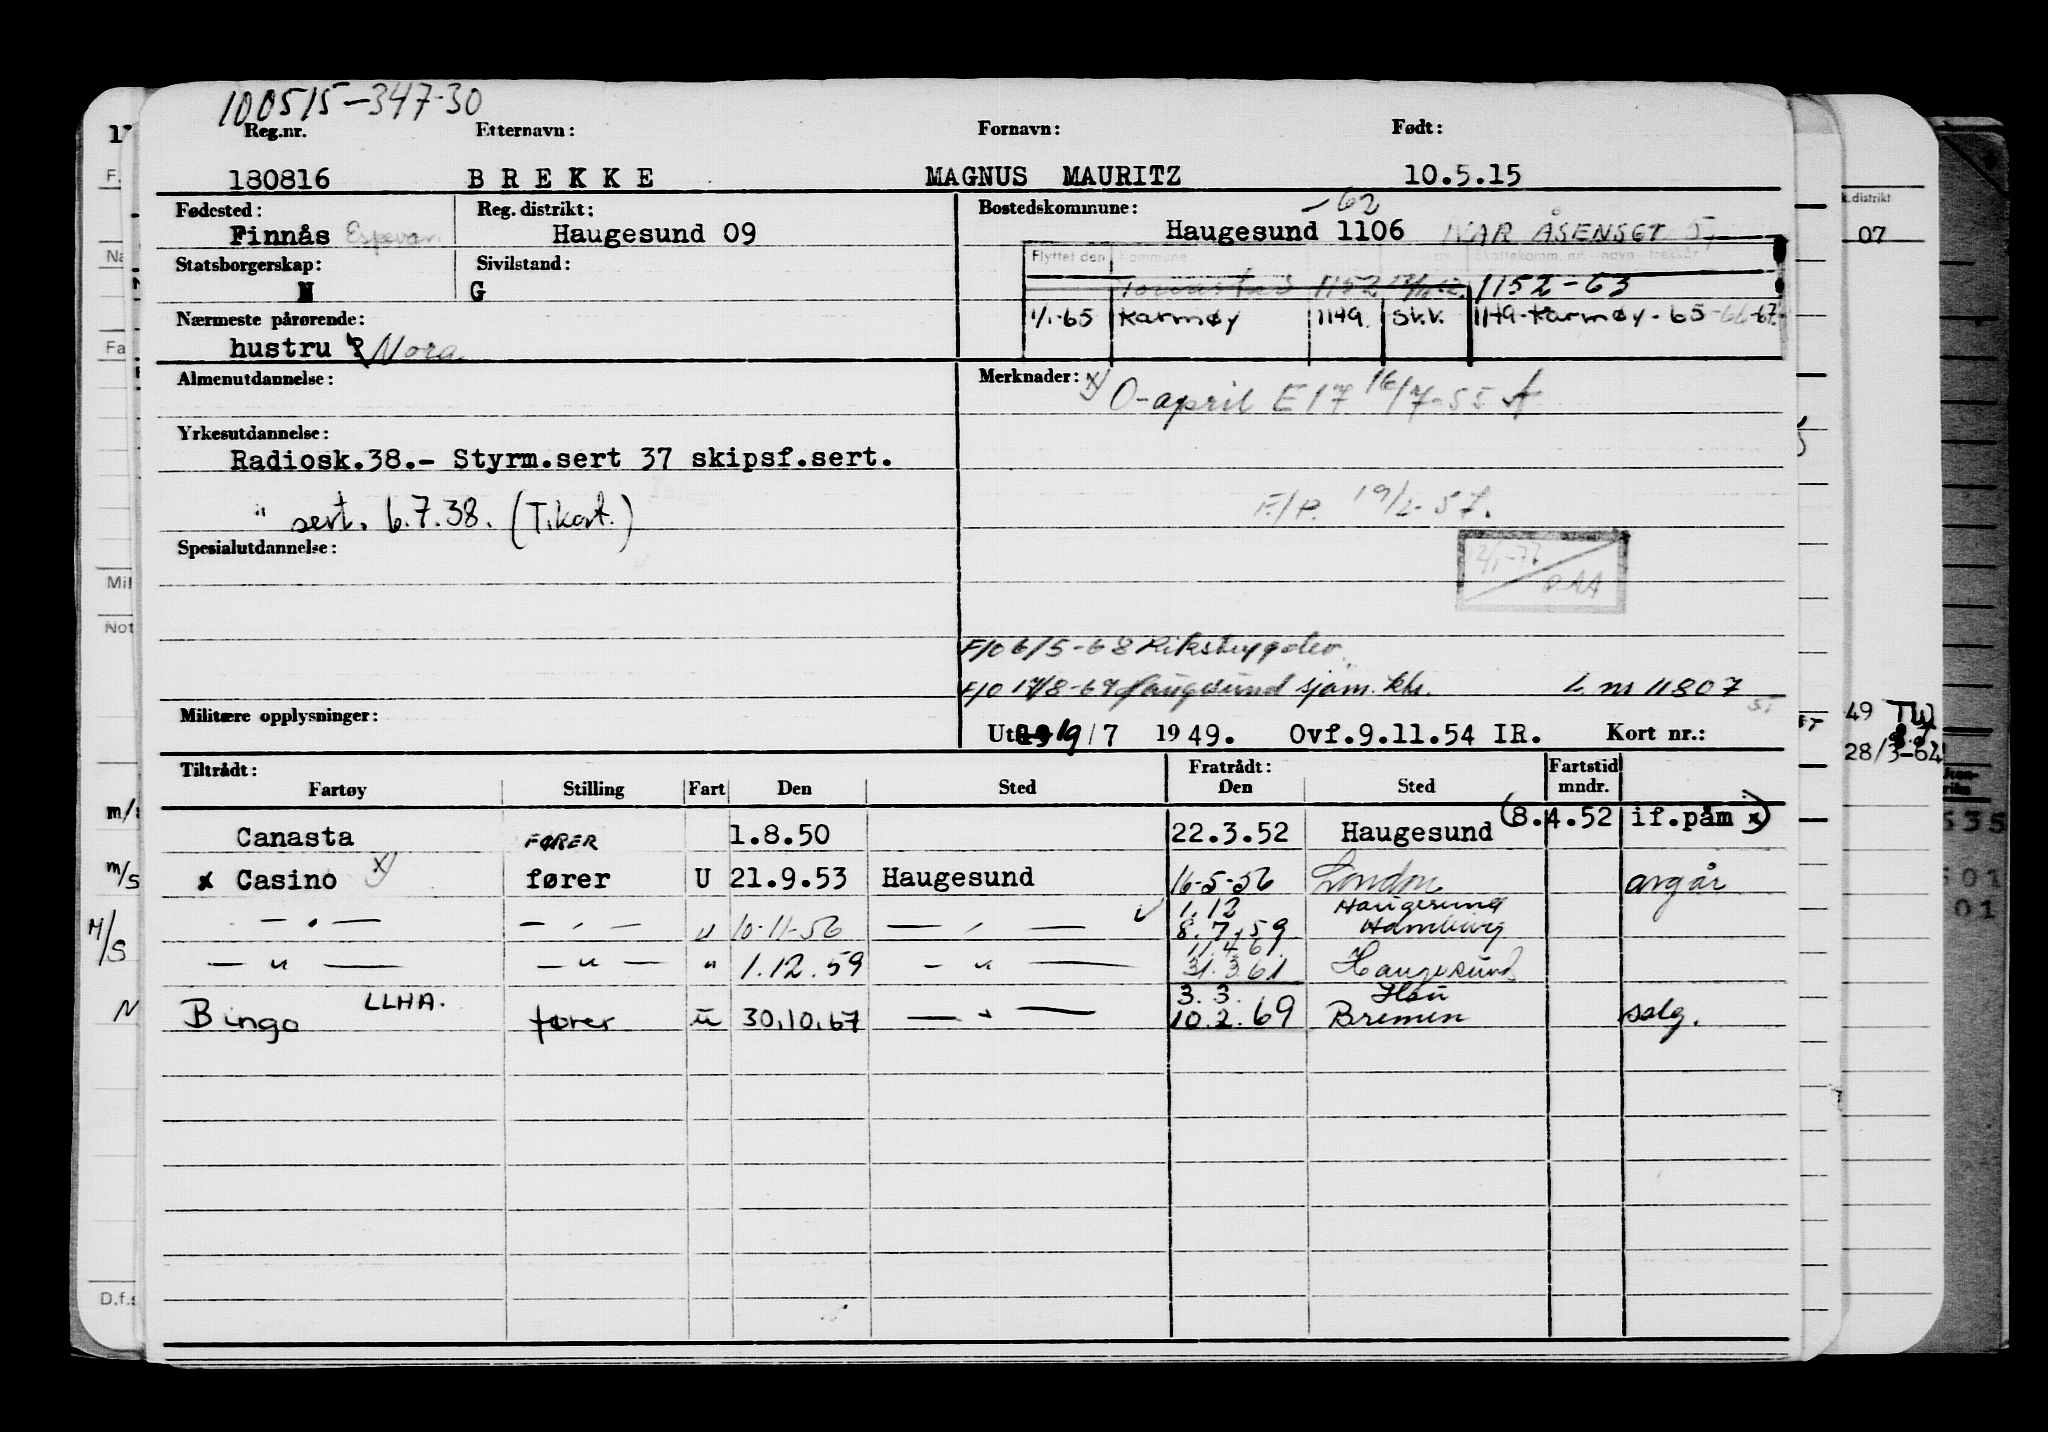 100515-347-30
Reg.nr. Etternavn: Fornavn: Født:
180816 B R E K K E MAGNUS MAURITZ 10.5.15
Fødested: Reg. distrikt: Bostedskommune: -62
Finnås Espevær Haugesund 09 Haugesund 1106 IVAR ÅSENSGT 57
Statsborgerskap: Sivilstand: Flyttet den Kommune Skattekomm. nr.-navn-trekkår
N G 1152 1152-63
Nærmeste pårørende: 1/1-65 Karmøy 1149 Sk.k. 1149-Karmøy-65-66-67
hustru Nora
Almenutdannelse: Merknader: x) O-april E17 16/7-55
Yrkesutdannelse:
Radiosk.38.- Styrm.sert 37 skipsf.sert.
" sert. 6.7.38. (T.kort.) F/P. 19/2-57.
Spesialutdannelse: 
F/O 6/5-68 Rikstrygdev.
Haugesund sjøm. ktr. L nr 11807
Militære opplysninger: Utst. 19/7 1949. Ovf.9.11.54 IR. Kort nr.:
Tiltrådt: Fratrådt: Fartstid
Fartøy Stilling Fart Den Sted Den Sted mndr.
Canasta FØRER 1.8.50 22.3.52 Haugesund (8.4.52 if.påm x)
x Casino x) fører U 21.9.53 Haugesund 16-5-56 London avgår
1.12 Haugesund
— " — — " — " 10-11-56 — " — 8.7.59 Hamburg
11.4.61
— " — — " — " 1.12.59 — " — 31.3.61 Haugesund
LLHA. 3.3. Hau
Bingo fører u 30.10.67 — " — 10.2.69 Bremen salg.
k.distrikt
07
49 TW
28/3-62
Mil
Not
D.f.s
m/s
M/S
N
535
501
01